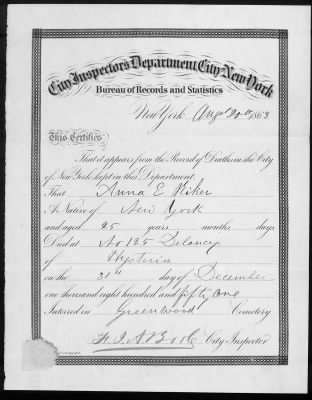 City Inspector's Department, City New York
Bureau of Records and Statistics
New York Augst 20th 1863
This Certifies
That it appears from the Record of Deaths in the City
of New York, kept in this Department
That Anna E Riker
A Native of New York
and aged 25 years months days
Died at No 125 Delancy
of Hysteria
on the 31st day of December
one thousand eight hundred and fifty one
Interred in Greenwood Cemetery
F. I. A. Boole City Inspector